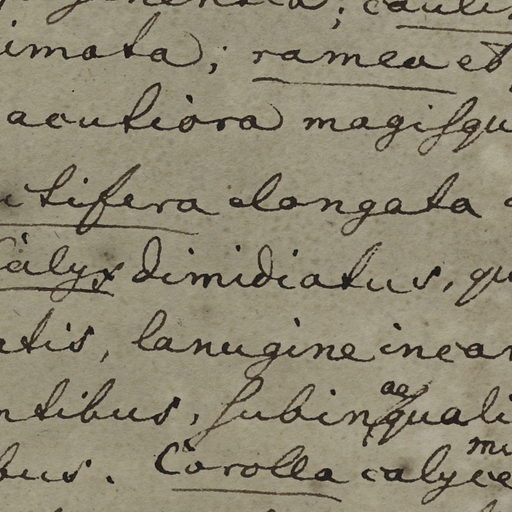 imata; ramea et
acutiora magisqu
tifera elongata
Calyx dimidiatus, qu
atis, lanugine incan
ntibus, subinaequali
bus. Corolla calyce